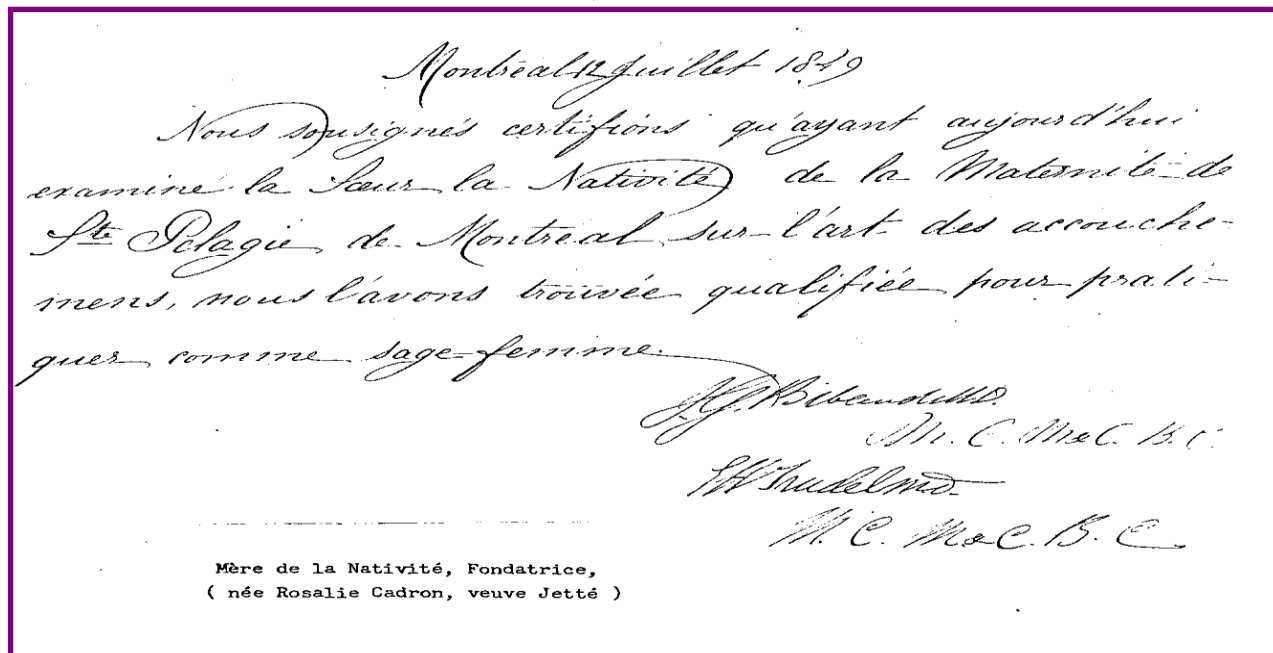 Montréal 12 Juillet 1849
Nous sousignés certifions qu'ayant aujourd'hui
examiné la Sœur la Nativité de la Maternité de
Ste Pelagie de Montréal sur l'art des accouche-
mens, nous l'avons trouvée qualifiée pour prati-
quer comme sage-femme.
J.G. Bibaud M.D.
M. C. M & C. B. C.
Trudel M.D.
M. C. M & C. B. C.
Mère de la Nativité, Fondatrice,
( née Rosalie Cadron, veuve Jetté )